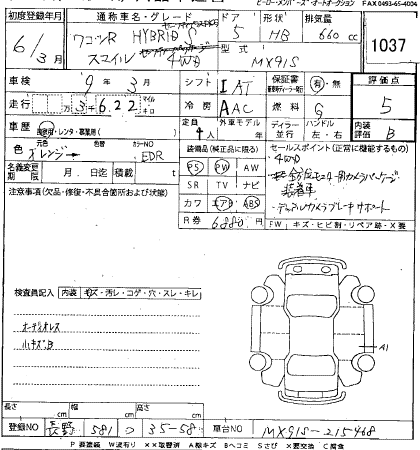 FAX 0493-65-4004
初度登録年月 通称車名・グレード ドア 形状 排気量
6/3月 ワゴンR スマイル HYBRID S 4WD 5 HB 660cc 1037
型式 MX91S
車検 9年3月 シフト IAT 保証書 有・無 評価点 5
走行 3万6,622 マイル キロ 冷房 AAC 燃料 G
車歴 自家用・レンタ・事業用 定員 4人 外車モデル ディーラー 並行 ハンドル 左・右 内装評価 B
色 元色 オレンジ 色替 カラーNO EDR
装備品(純正品に限る) セールスポイント(正常に機能するもの)
名義変更期限 月 日迄 積載 t
PS PW AW 4WD
SR TV ナビ 装着車
注意事項(欠品・修復・不具合箇所および状態)
カワ エアB ABS デュアルカメラブレーキサポート
R券 6880円 FW キズ・ヒビ割・リペア跡・X要
検査員記入 内装 キズ・汚レ・コゲ・穴・スレ・キレ
オーディオレス
小キズ.B
A1
長さ cm 幅 cm 高さ cm
登録NO 長野 581 35-58 車台NO MX91S-215468
P要塗装 W波有り ××取替済 A線キズ Bヘコミ Sさび X要交換 C腐食